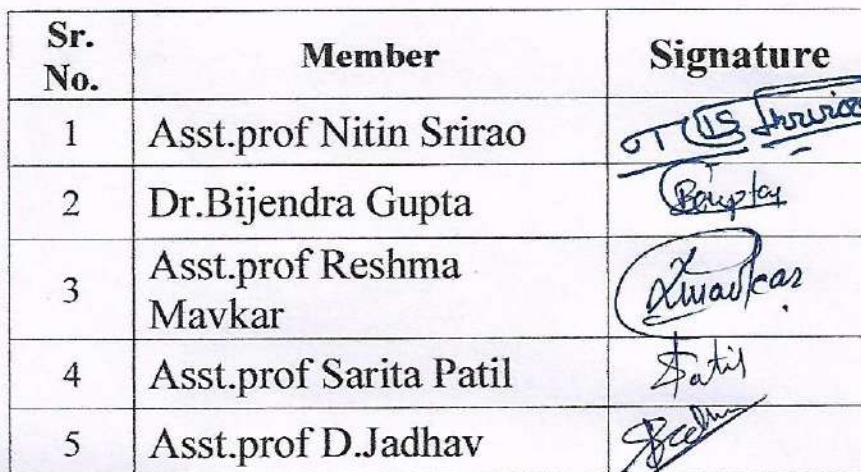 Sr. No. Member Signature
1 Asst.prof Nitin Srirao
2 Dr.Bijendra Gupta BGuptay
3 Asst.prof Reshma Mavkar Rmavkar
4 Asst.prof Sarita Patil SPatil
5 Asst.prof D.Jadhav